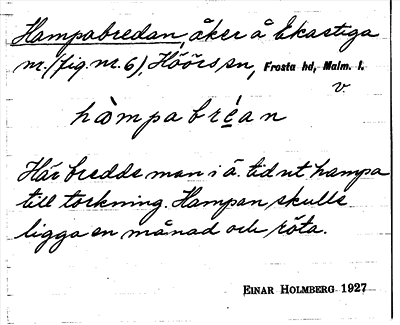 Hampabredan, åker å Ekastiga
nr. (fig. nr. 6), Höörs sn, Frosta hd, Malm. l.
v.
hàmpabréan
Här bredde man i ä. tid ut hampa
till torkning. Hampan skulle
ligga en månad och röta.
EINAR HOLMBERG 1927